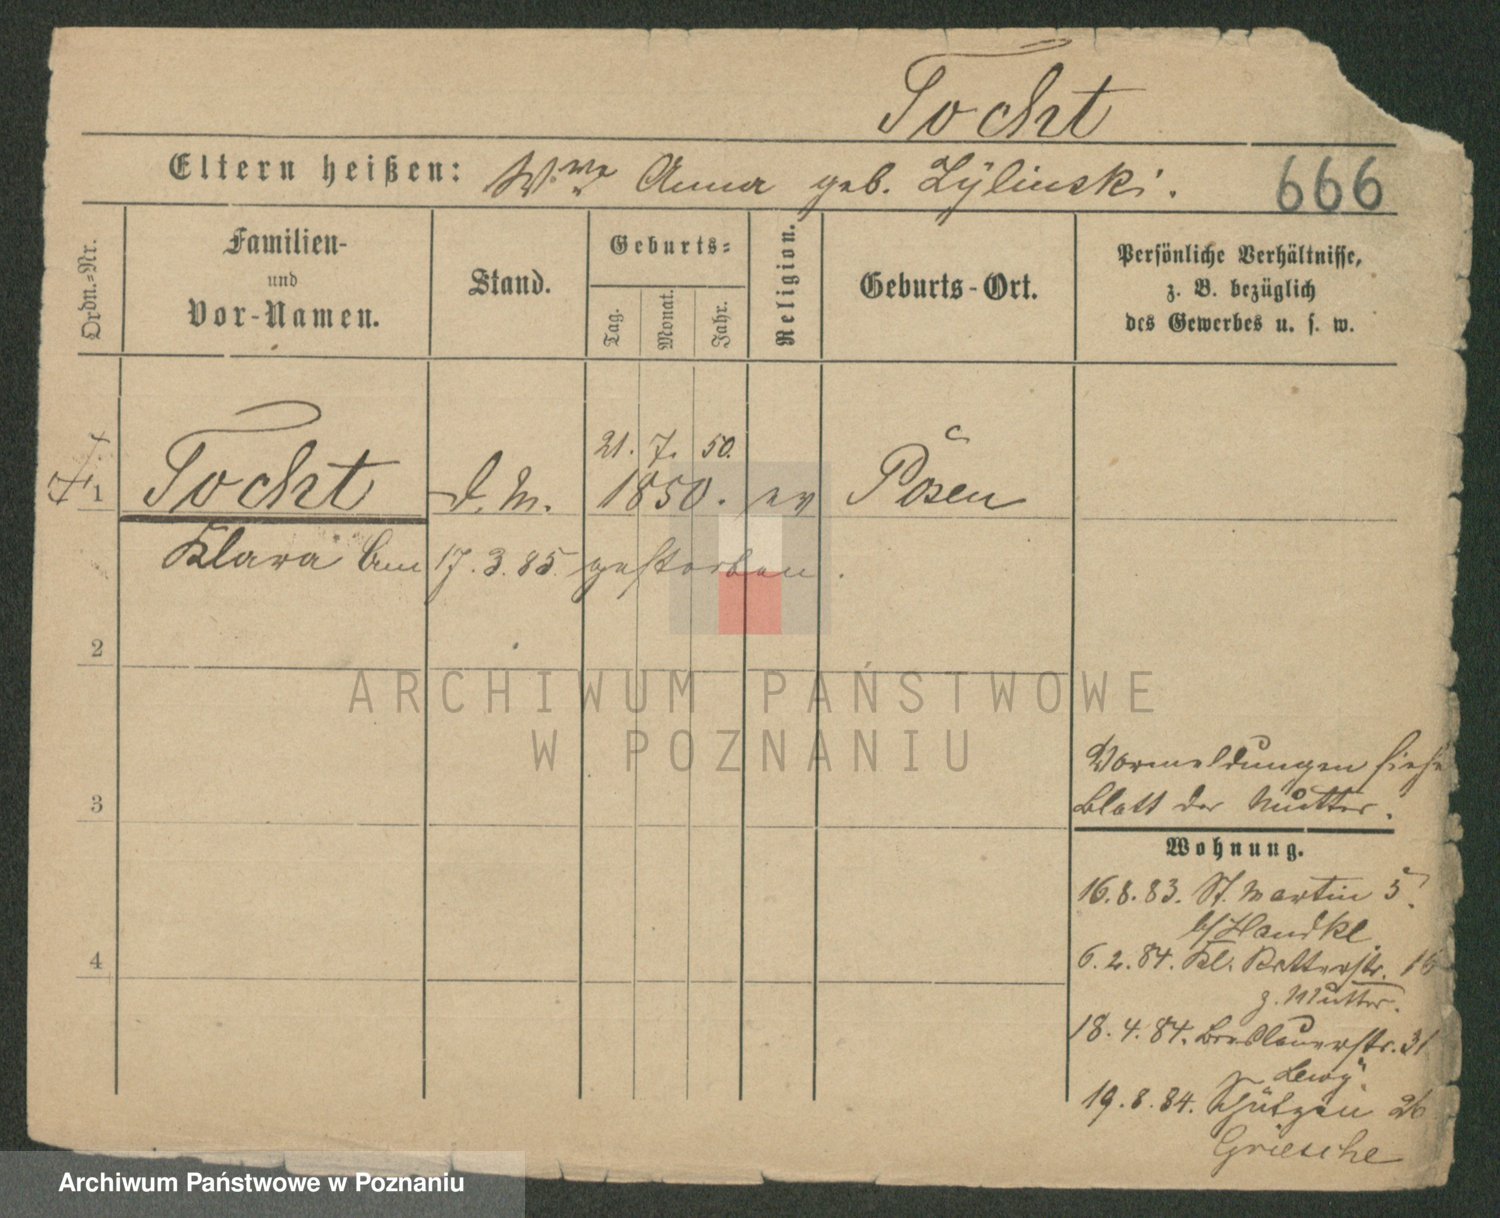 Tocht
Eltern heißen: Wwe Anna geb. Zÿlinski.
666
Ordn.-Nr.
Familien-
und
Vor-Namen.
Stand.
Geburts-
Tag.
Monat.
Jahr.
Religion.
Geburts-Ort.
Persönliche Verhältnisse,
z. B. bezüglich
des Gewerbes u. s. w.
21. 7. 50.
1 Tocht d. M. 1850. ev Posen
Klara am 17.3.85. gestorben.
2
3
4
Vormeldungen siehe
Blatt der Mutter.
Wohnung.
16.8.83. St. Martin 5
b/Handke
6.2.84. Kl. Ritterstr. 16
z. Mutter.
18.4.84. Breslauerstr. 31
Lewy
19.8.84. Schützen 26
Griesche
ARCHIWUM PAŃSTWOWE
W POZNANIU
Archiwum Państwowe w Poznaniu